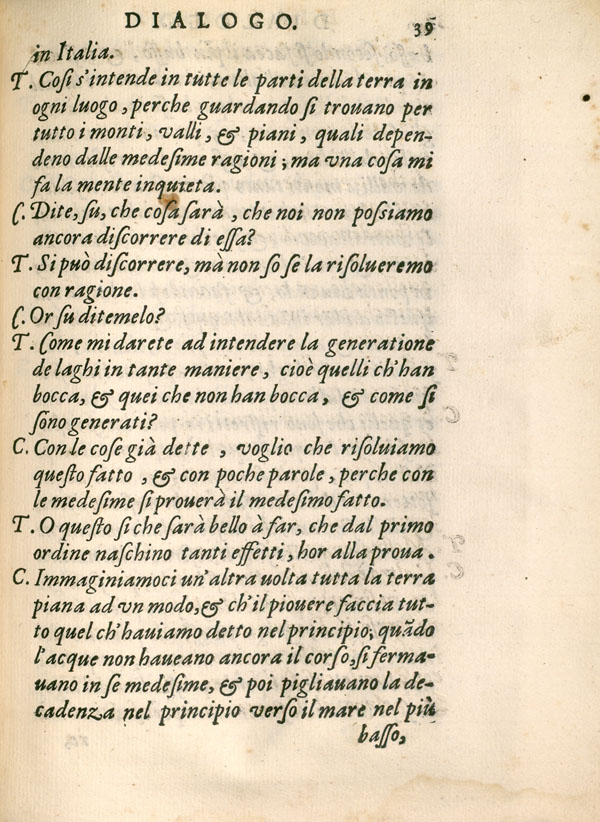 DIALOGO. 39
in Italia.
T. Coſi s'intende in tutte le parti della terra in
ogni luogo, perche guardando ſi trouano per
tutto i monti, valli, & piani, quali depen-
deno dalle medeſime ragioni; ma vna coſa mi
fa la mente inquieta.
C. Dite, ſu, che coſa ſarà, che noi non poſsiamo
ancora diſcorrere di eſſa?
T. Si può diſcorrere, mà non so se la riſolueremo
con ragione.
C. Or ſu ditemelo?
T. Come mi darete ad intendere la generatione
de laghi in tante maniere, cioè quelli ch'han
bocca, & quei che non han bocca, & come ſi
ſono generati?
C. Con le coſe già dette, voglio che riſoluiamo
queſto fatto, & con poche parole, perche con
le medeſime ſi prouerà il medeſimo fatto.
T. O queſto ſi che ſarà bello à far, che dal primo
ordine naſchino tanti effetti, hor alla proua.
C. Immaginiamoci un'altra uolta tutta la terra
piana ad vn modo, & ch'il piouere faccia tut-
to quel ch'hauiamo detto nel principio; quãdo
l'acque non haueano ancora il corſo, ſi ferma-
uano in ſe medeſime, & poi pigliauano la de-
cadenza nel principio verſo il mare nel più
baſſo,